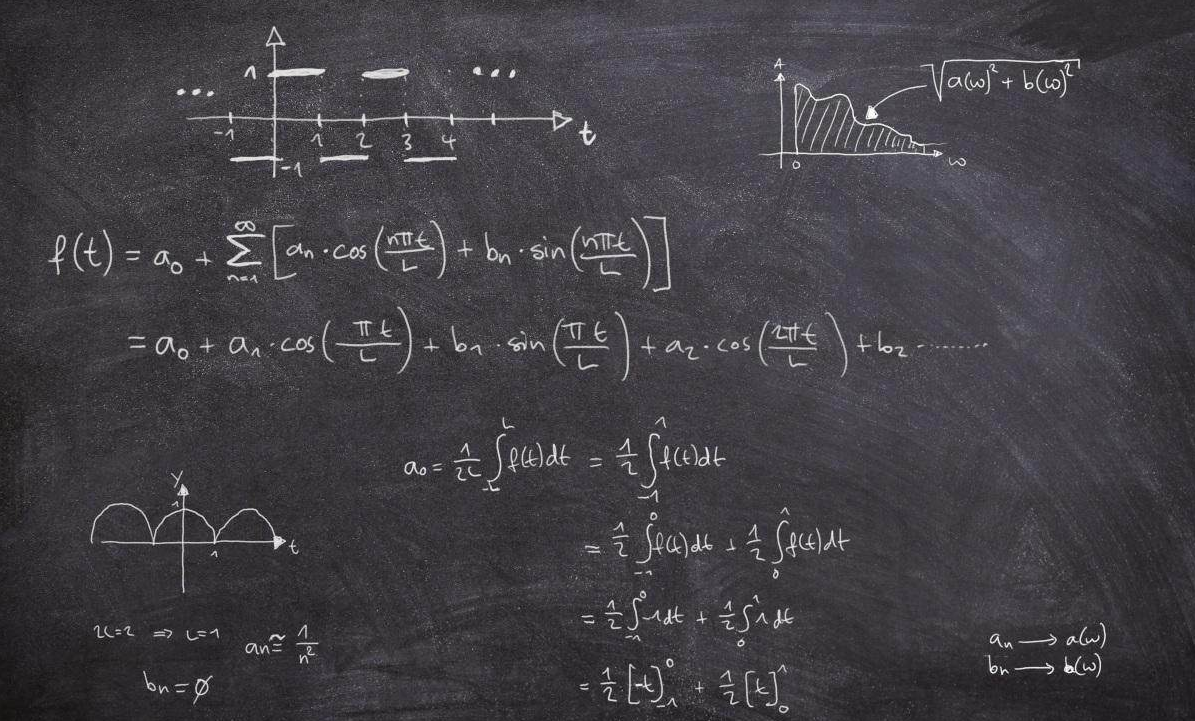 1
... ...
-1 1 2 3 4 t
-1
A √a(ω)² + b(ω)²
0 ω
f(t) = a₀ + ∑ₙ₌₁^∞ [aₙ · cos(nπt/L) + bₙ · sin(nπt/L)]
= a₀ + a₁ · cos(πt/L) + b₁ · sin(πt/L) + a₂ · cos(2πt/L) + b₂ ........
a₀ = 1/2L ∫₋L^L f(t)dt = 1/2 ∫₋₁^1 f(t)dt
= 1/2 ∫₋₁^0 f(t)dt + 1/2 ∫₀^1 f(t)dt
= 1/2 ∫₋₁^0 -1dt + 1/2 ∫₀^1 1dt
= 1/2 [-t]₋₁^0 + 1/2 [t]₀^1
y
1
1 t
2L=2 ⇒ L=1 aₙ ≅ 1/n²
bₙ = ∅
aₙ → a(ω)
bₙ → b(ω)